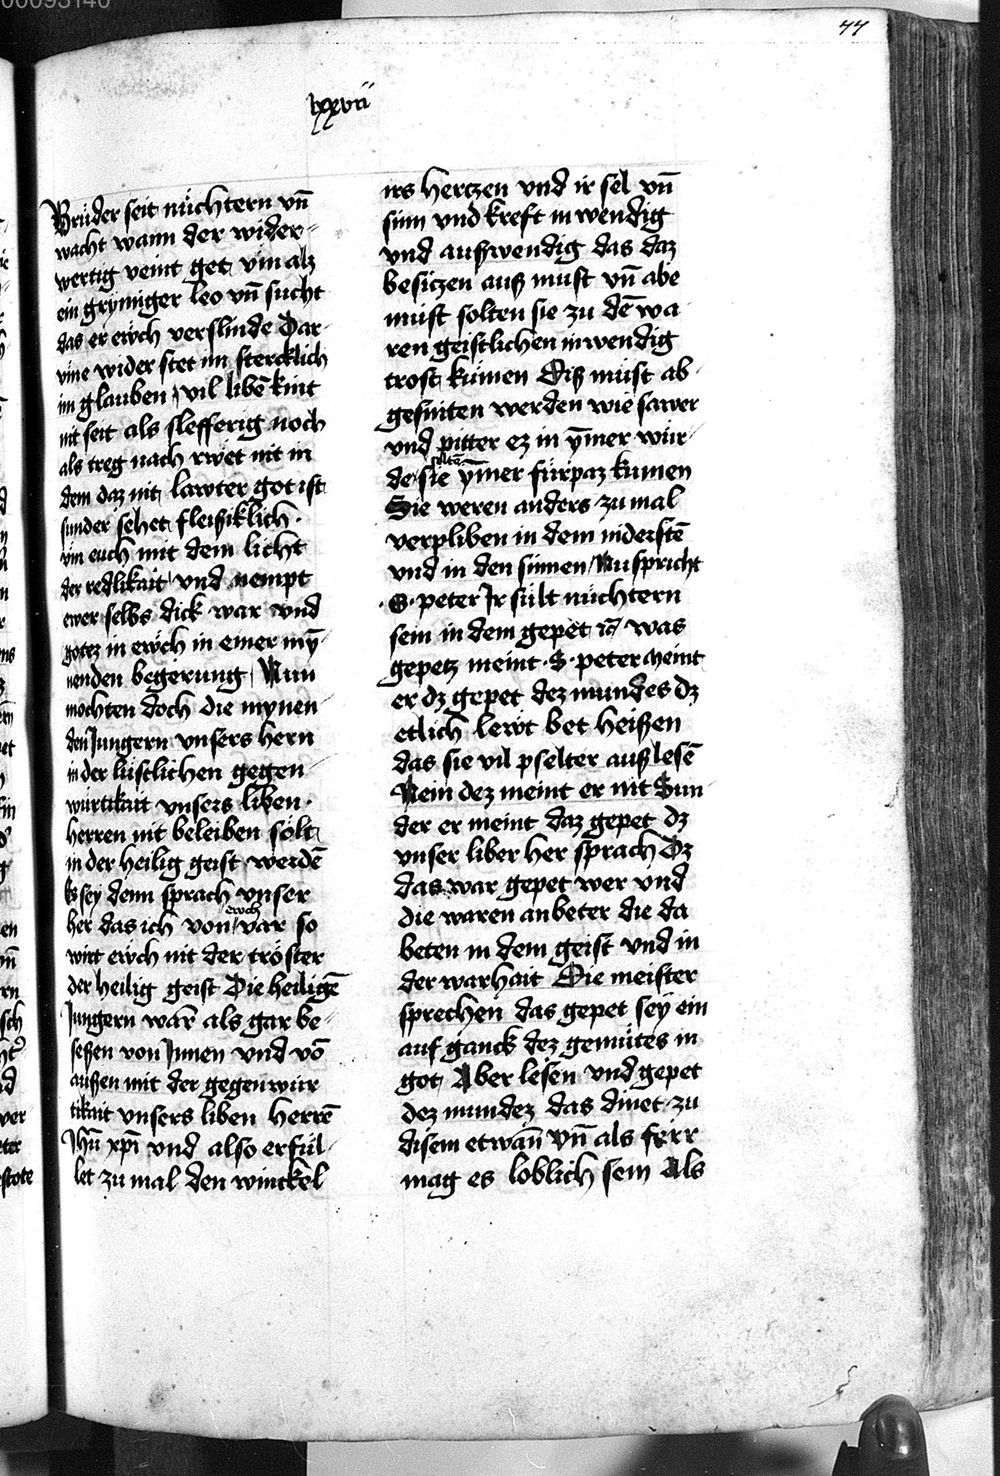 00093140
77
lxxvii
Brüder seit nüchtern vn̄
wacht wann der wider-
wertig veint get vm alz
ein grymiger leo vn̄ sucht
das er ewch verslinde Dar-
vme wider stet im stercklich
im glauben vil libē kint
nit seit als slefferig noch
als treg nach rwet nit in
dem daz nit lawter got ist
sunder sehet fleißiklich.
vm euch mit dem licht
der redlikait vnd nempt
ewer selbs dick war vnd
gotez in ewch in einer mȳ-
nenden begerung Nun
mochten doch die mynen-
den Jungern vnsers hern
in der lustlichen gegen-
würtikait vnsers liben.
herren nit beleiben solt
in der heilig geist werdē
Es sey denn sprach vnser
her das ich von ewch var so
wirt ewch nit der tröster
der heilig geist Die heiligē
Jungern warn̄ als gar be-
seßen von Innen vnd vō
außen mit der gegenwur
tikait vnsers liben herrē
Jhū xp̄i vnd also erfül-
let zu mal den winckel
irs hertzen vnd ir sel vn̄
sinn vnd kreft inwendig
vnd außwendig das daz
besiczen auß must vn̄ abe
must solten sie zu dē wa
ren geistlichen inwendig
trost kumen Diß must ab-
gesniten werden wie sawer
vnd pitter ez in ym̄er wür-
de solte sie ym̄er fürpaz kumen
Sie weren anders zu mal
verpliben in dem niderstē
vnd in den sinnen Nu spricht
.S. peter Ir sült nüchtern
sein in dem gepet ia was
gepetz meint .S. peter meint
er dz gepet dez mundes dz
etlich lewt bet heißen
das sie vil pselter auß lesē
Nein dez meint er nit Sun-
der er meint daz gepet dz
vnser liber her sprach Dz
das war gepet wer vnd
die waren anbeter die da
beten in dem geist vnd in
der warhait Die meister
sprechen das gepet sey ein
auf ganck dez gemütes in
got Aber lesen vnd gepet
dez mundez das dinet zu
disem etwan̄ vn̄ als ferr
mag es loblich sein Als